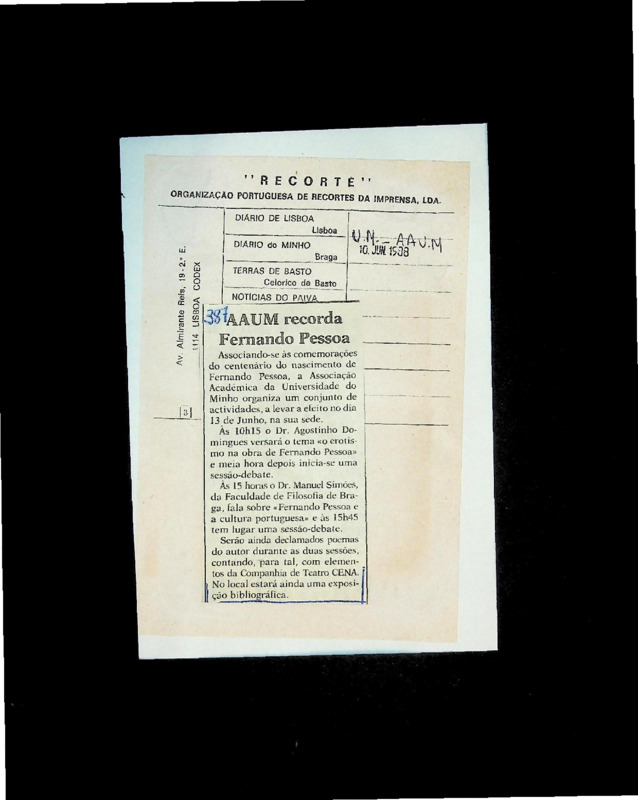 "RECORTE"
ORGANIZAÇÃO PORTUGUESA DE RECORTES DA IMPRENSA, LDA.
Av. Almirante Reis, 19-2.º E.
1114 LISBOA CODEX
3
DIÁRIO DE LISBOA
Lisboa
DIÁRIO do MINHO
Braga
TERRAS DE BASTO
Celorico de Basto
NOTÍCIAS DO PAIVA
U.M. - AAUM
10. JUN. 1988
387
AAUM recorda
Fernando Pessoa
Associando-se às comemorações
do centenário do nascimento de
Fernando Pessoa, a Associação
Académica da Universidade do
Minho organiza um conjunto de
actividades, a levar a efeito no dia
13 de Junho, na sua sede.
Às 10h15 o Dr. Agostinho Do-
mingues versará o tema «o erotis-
mo na obra de Fernando Pessoa»
e meia hora depois inicia-se uma
sessão-debate.
Às 15 horas o Dr. Manuel Simões,
da Faculdade de Filosofia de Bra-
ga, fala sobre «Fernando Pessoa e
a cultura portuguesa» e às 15h45
tem lugar uma sessão-debate.
Serão ainda declamados poemas
do autor durante as duas sessões,
contando, para tal, com elemen-
tos da Companhia de Teatro CENA.
No local estará ainda uma exposi-
ção bibliográfica.